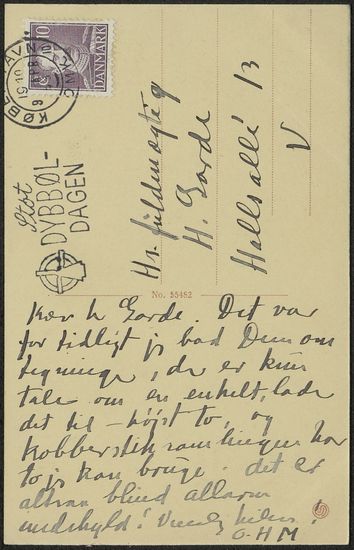 KØBENHAVN
OMK.
10
DANMARK
Støt
DYBBØL-
DAGEN
Hr. fuldmægtig
H. Garde
Halls allé 13
V
No. 55482
Kære h Garde. Det var
for tidligt jeg bad Dem om
tegninge, der er kun
tale om en enkelt, lade
det til – højst to, og
Kobberstiksamlingen har
to jeg kan bruge. det er
altsaa blind allarm
undskyld! Venlig hilsen!
O.H.M